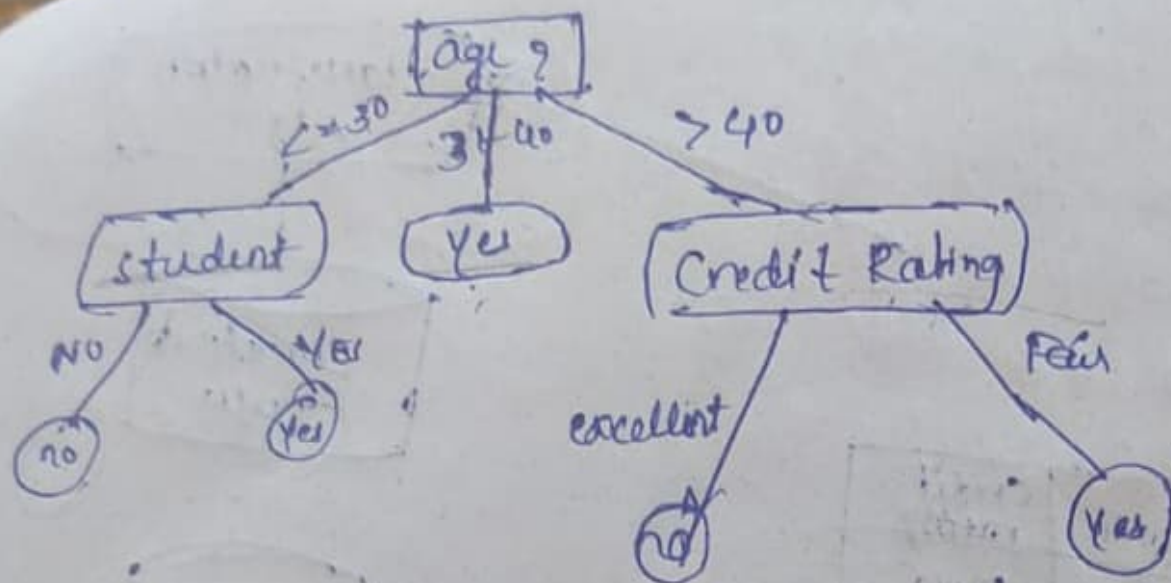 Age ?
<= 30
31-40
> 40
student
Yes
Credit Rating
NO
YES
excellent
Fair
no
Yes
no
Yes